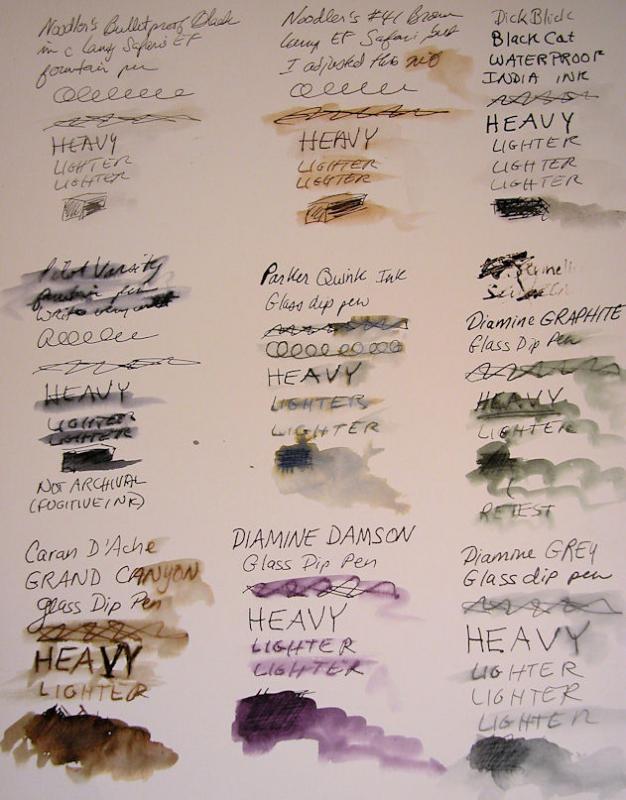 Noodler's Bulletproof Black
in c Lamy Safari EF
fountain pen
HEAVY
LIGHTER
LIGHTER
Noodler's #41 Brown
Lamy EF Safari but
I adjusted this nib
HEAVY
LIGHTER
LIGHTER
Dick Blick
Black Cat
WATERPROOF
INDIA INK
HEAVY
LIGHTER
LIGHTER
LIGHTER
Pilot Varsity
fountain pen
HEAVY
LIGHTER
LIGHTER
NOT ARCHIVAL
(FUGITIVE INK)
Parker Quink Ink
Glass dip pen
HEAVY
LIGHTER
LIGHTER
Diamine GRAPHITE
Glass Dip Pen
HEAVY
LIGHTER
RETEST
Caran D'Ache
GRAND CANYON
glass Dip Pen
HEAVY
LIGHTER
DIAMINE DAMSON
Glass Dip Pen
HEAVY
LIGHTER
LIGHTER
Diamine GREY
Glass dip pen
HEAVY
LIGHTER
LIGHTER
LIGHTER